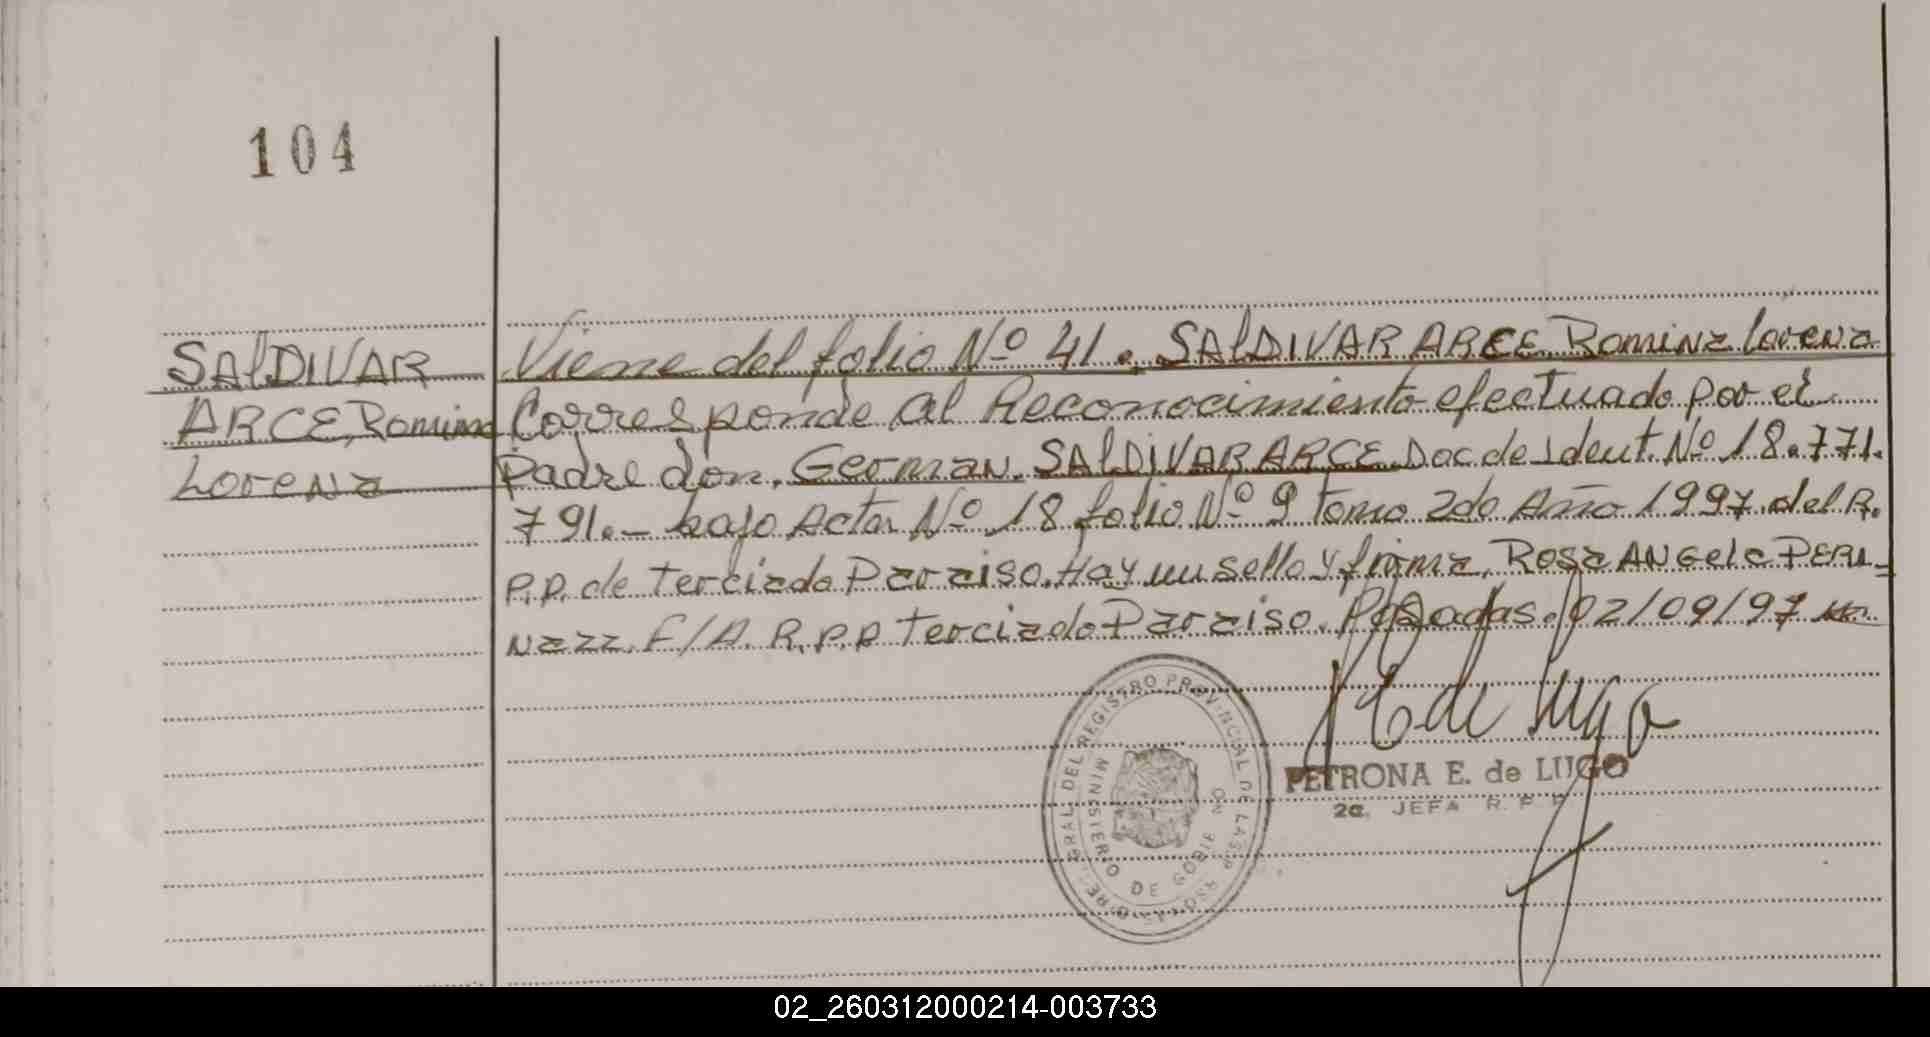 104
SALDIVAR
ARCE, Romina
Lorena
Viene del folio Nº 41. SALDIVAR ARCE Romina Lorena
Corresponde al Reconocimiento efectuado por el
Padre don. German. SALDIVAR ARCE. Doc de Ident. Nº 18.771.
791.- bajo Acta Nº 18 folio Nº 9 Tomo 2do Año 1997 del R.
P.P. de Terciado Paraiso. Hay un sello y firma, Rosa ANGELC PERU-
Nazz. F/A. R.P.P Terciado Paraiso. Posadas. 02/09/97
PE de Lugo
PETRONA E. de LUGO
2a. JEFA R. P. P.
GRAL. DEL REGISTRO PROVINCIAL DE LAS P
MINISTERIO DE GOBIERNO
02_260312000214-003733